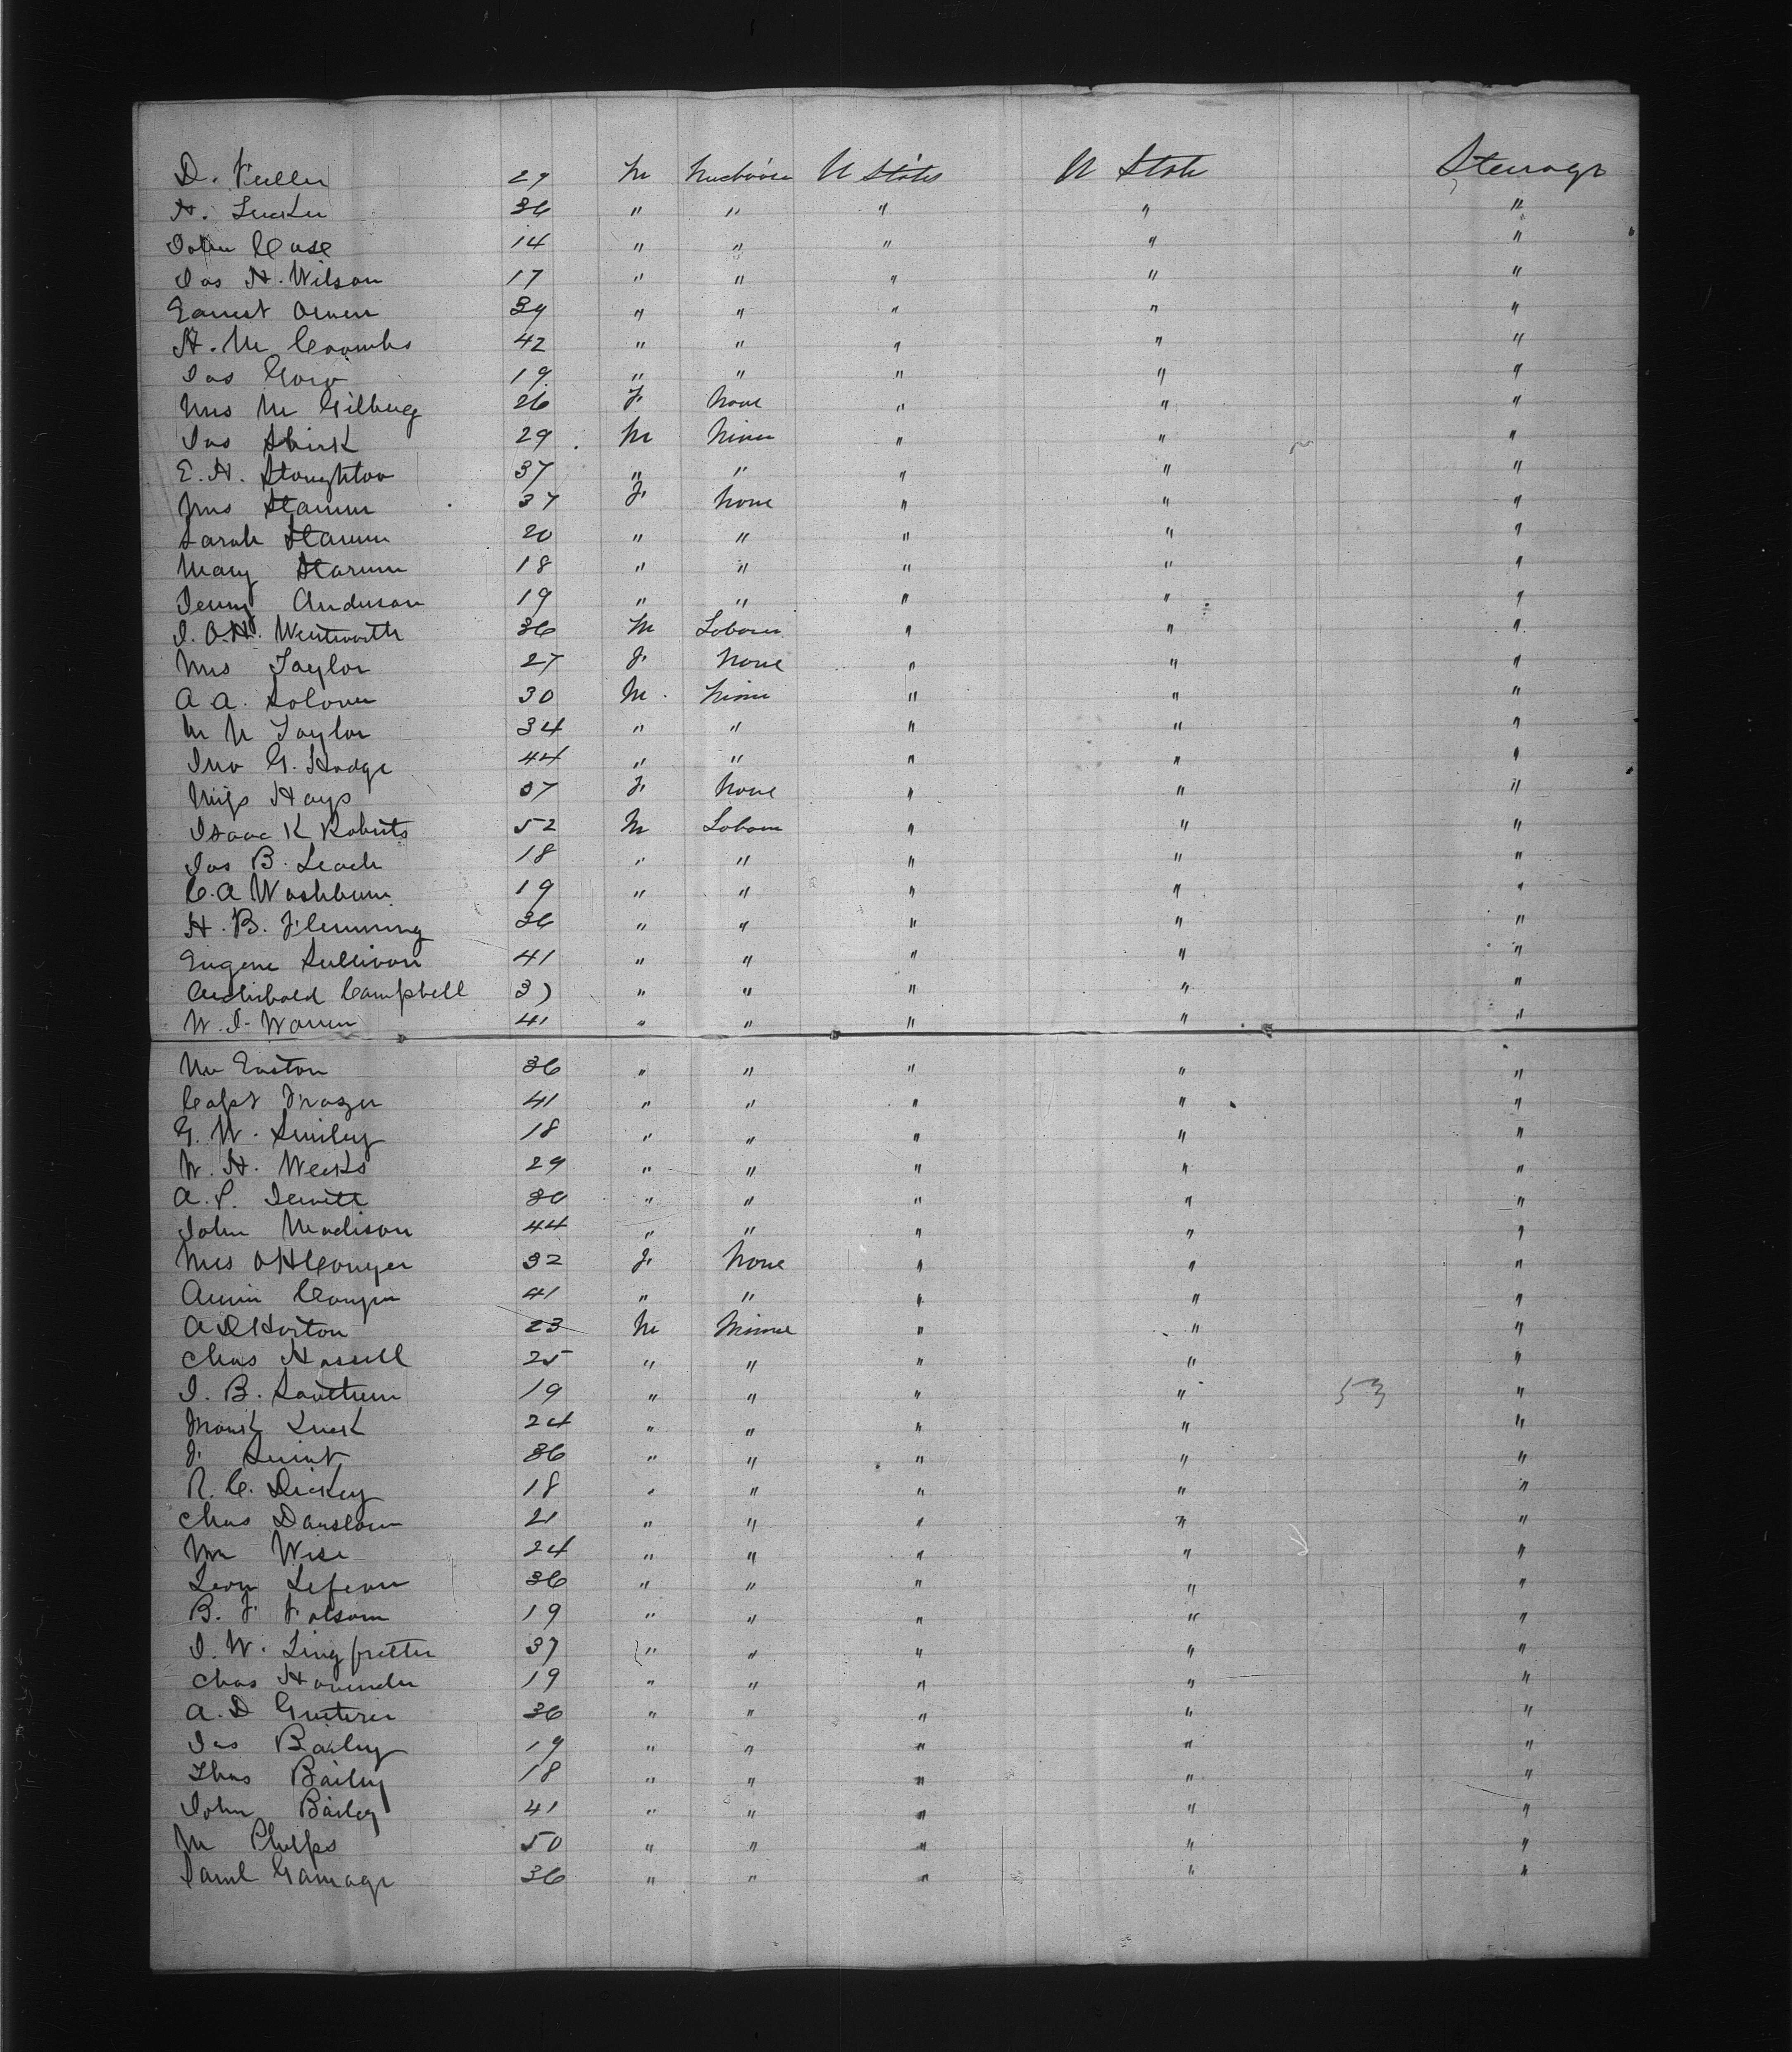 D. Fuller 29 M U States U State Steerage
H. Tucker 36 " " " " "
John Case 14 " " " " "
Jas H. Wilson 17 " " " " "
Earnest Owen 39 " " " " "
H. M Coombs 42 " " " " "
Jas 19 " " " " "
Mrs M Gilbug 26 F None " " "
Jas Shirk 29 M Miner " " "
E. H. Stoughton 37 " " " " "
Mrs Stamm 37 F None " " "
Sarah Stamm 20 " " " " "
Mary Stamm 18 " " " " "
Jenny Anderson 19 " " " " "
J. O.H. Wentworth 36 M Laborer " " "
Mrs Taylor 27 F None " " "
A A. Solover 30 M Miner " " "
M N Taylor 34 " " " " "
Jno G. Hodge 44 " " " " "
Miss Hays 37 F None " " "
Isaac K Roberts 52 M Labour " " "
Jas B. Leach 18 " " " " "
C. A Washburn 19 " " " " "
H. B. Flemming 36 " " " " "
Eugene Sullivan 41 " " " " "
Archibald Campbell 37 " " " " "
W. J. Warren 41 " " " " "
Mr Easton 36 " " " " "
Capt Frazer 41 " " " " "
G. W. Smiley 18 " " " " "
W. H. Weeks 29 " " " " "
A. P. 30 " " " " "
John Madison 44 " " " " "
Mrs O H Conyer 32 F None " " "
Annie Conyer 41 " " " " "
A D Horton 23 M Miner " " "
Chas Hassell 25 " " " " "
J. B. Southern 19 " " " 53 "
Frank Lusk 24 " " " " "
F. Quint 36 " " " " "
R. C. Dickey 18 " " " " "
Chas Danslow 21 " " " " "
Mr Wise 24 " " " " "
Leon 36 " " " " "
B. F. Folsom 19 " " " " "
J. W. Lingfretter 37 " " " " "
Chas Havender 19 " " " " "
A. D 36 " " " " "
Jas Bailey 19 " " " " "
Thos Bailey 18 " " " " "
John Bailey 41 " " " " "
M Phelps 50 " " " " "
Saml Gamage 36 " " " " "